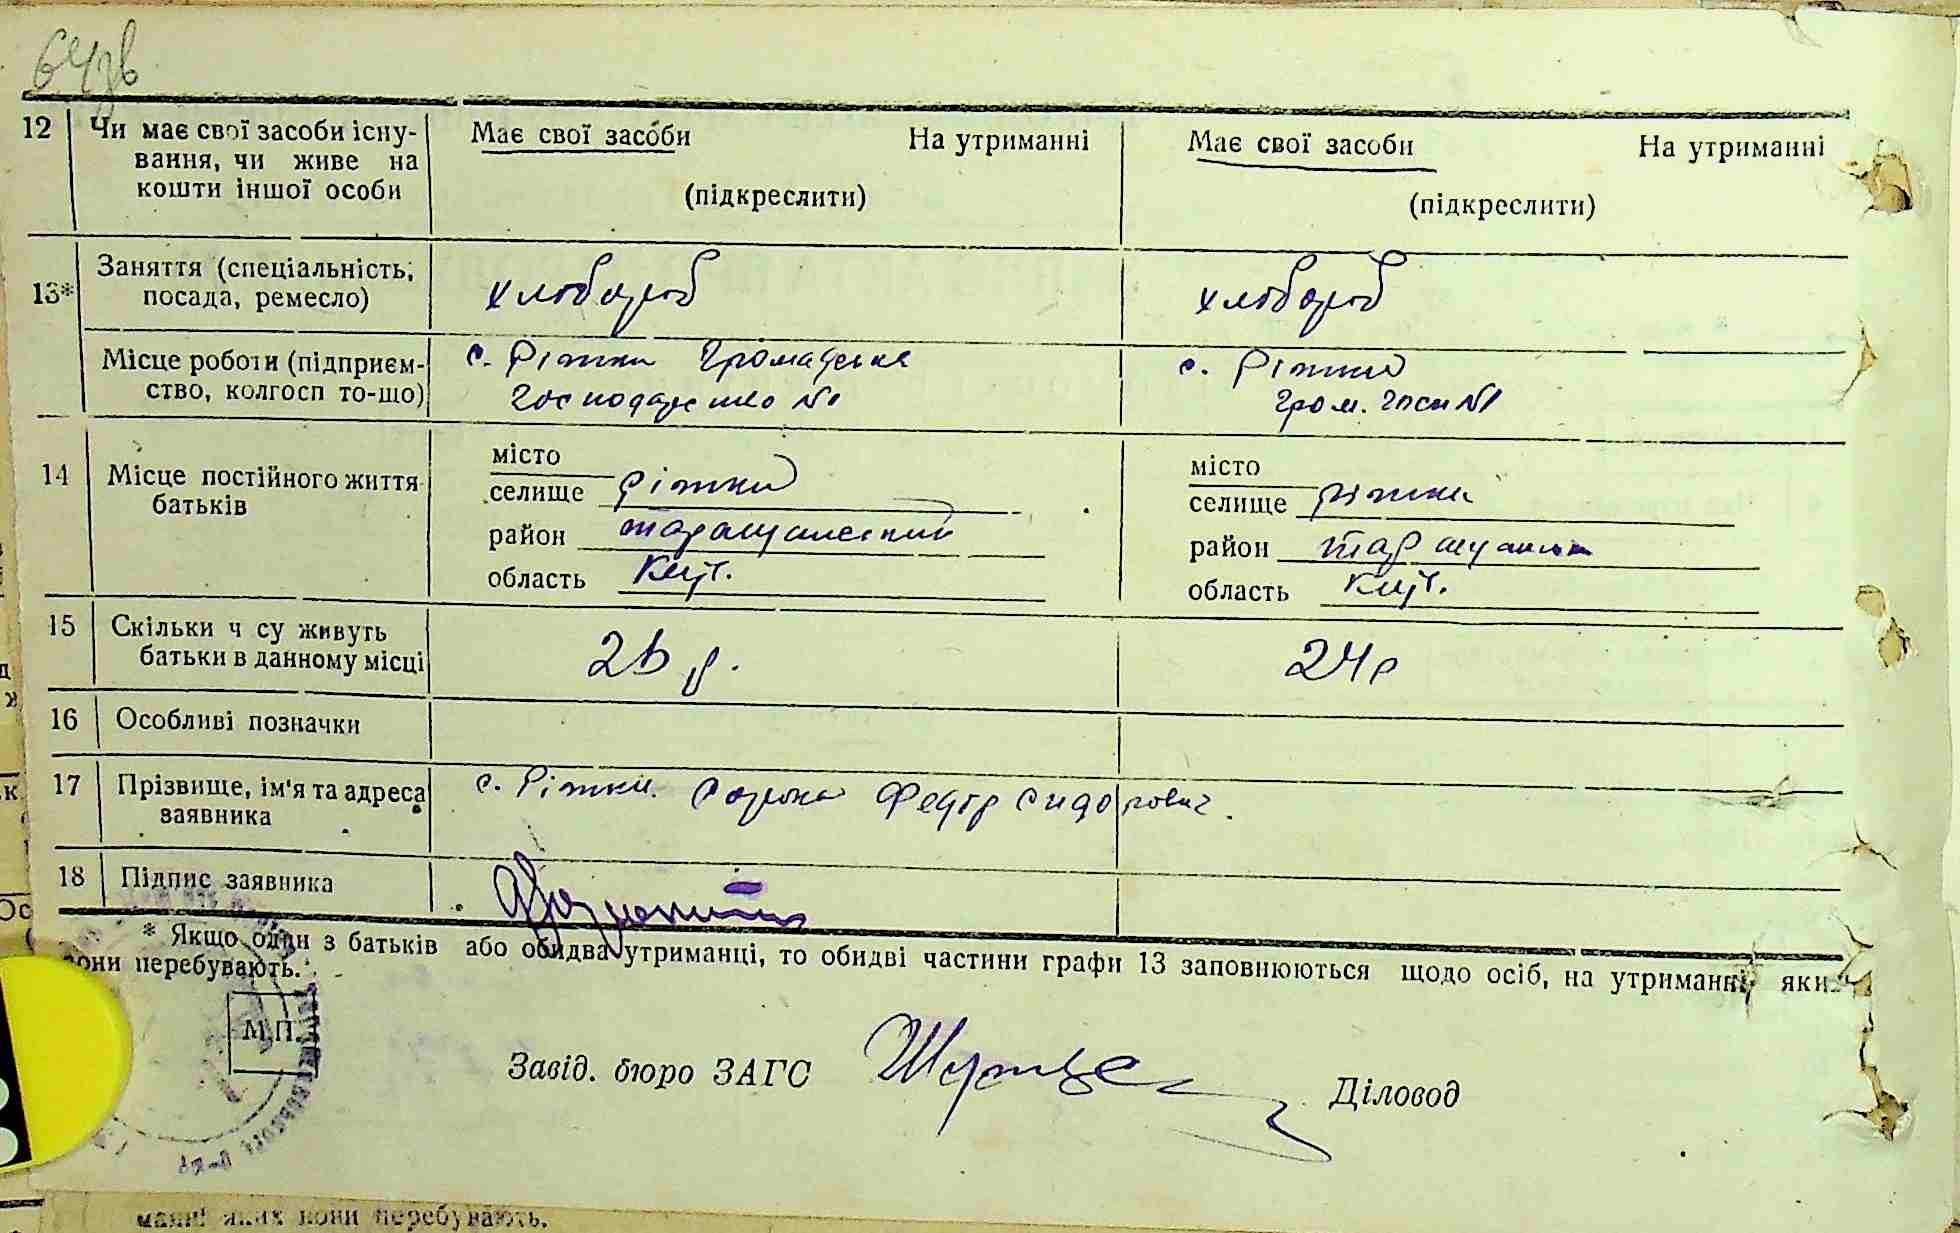 64зв
12 Чи має свої засоби існу-
вання, чи живе на
кошти іншої особи
Має свої засоби На утриманні
(підкреслити)
Має свої засоби На утриманні
(підкреслити)
13* Заняття (спеціальність,
посада, ремесло)
хлібороб
хлібороб
Місце роботи (підприєм-
ство, колгосп то-що)
с. Ріжки Громадське
господарство №1
с. Ріжки
гром. госп №1
14 Місце постійного життя
батьків
місто
селище Ріжки
район Таращанський
область Київ.
місто
селище Ріжки
район Таращанськ
область Київ.
15 Скільки ч су живуть
батьки в данному місці
26 р.
24 р
16 Особливі позначки
17 Прізвище, ім'я та адреса
заявника
с. Ріжки. Сорока Федір Сидорович.
18 Підпис заявника
* Якщо один з батьків або обидва утриманці, то обидві частини графи 13 заповнюються щодо осіб, на утриманні яких
вони перебувають.
М.П.
Завід. бюро ЗАГС
Діловод
манні яких вони перебувають.